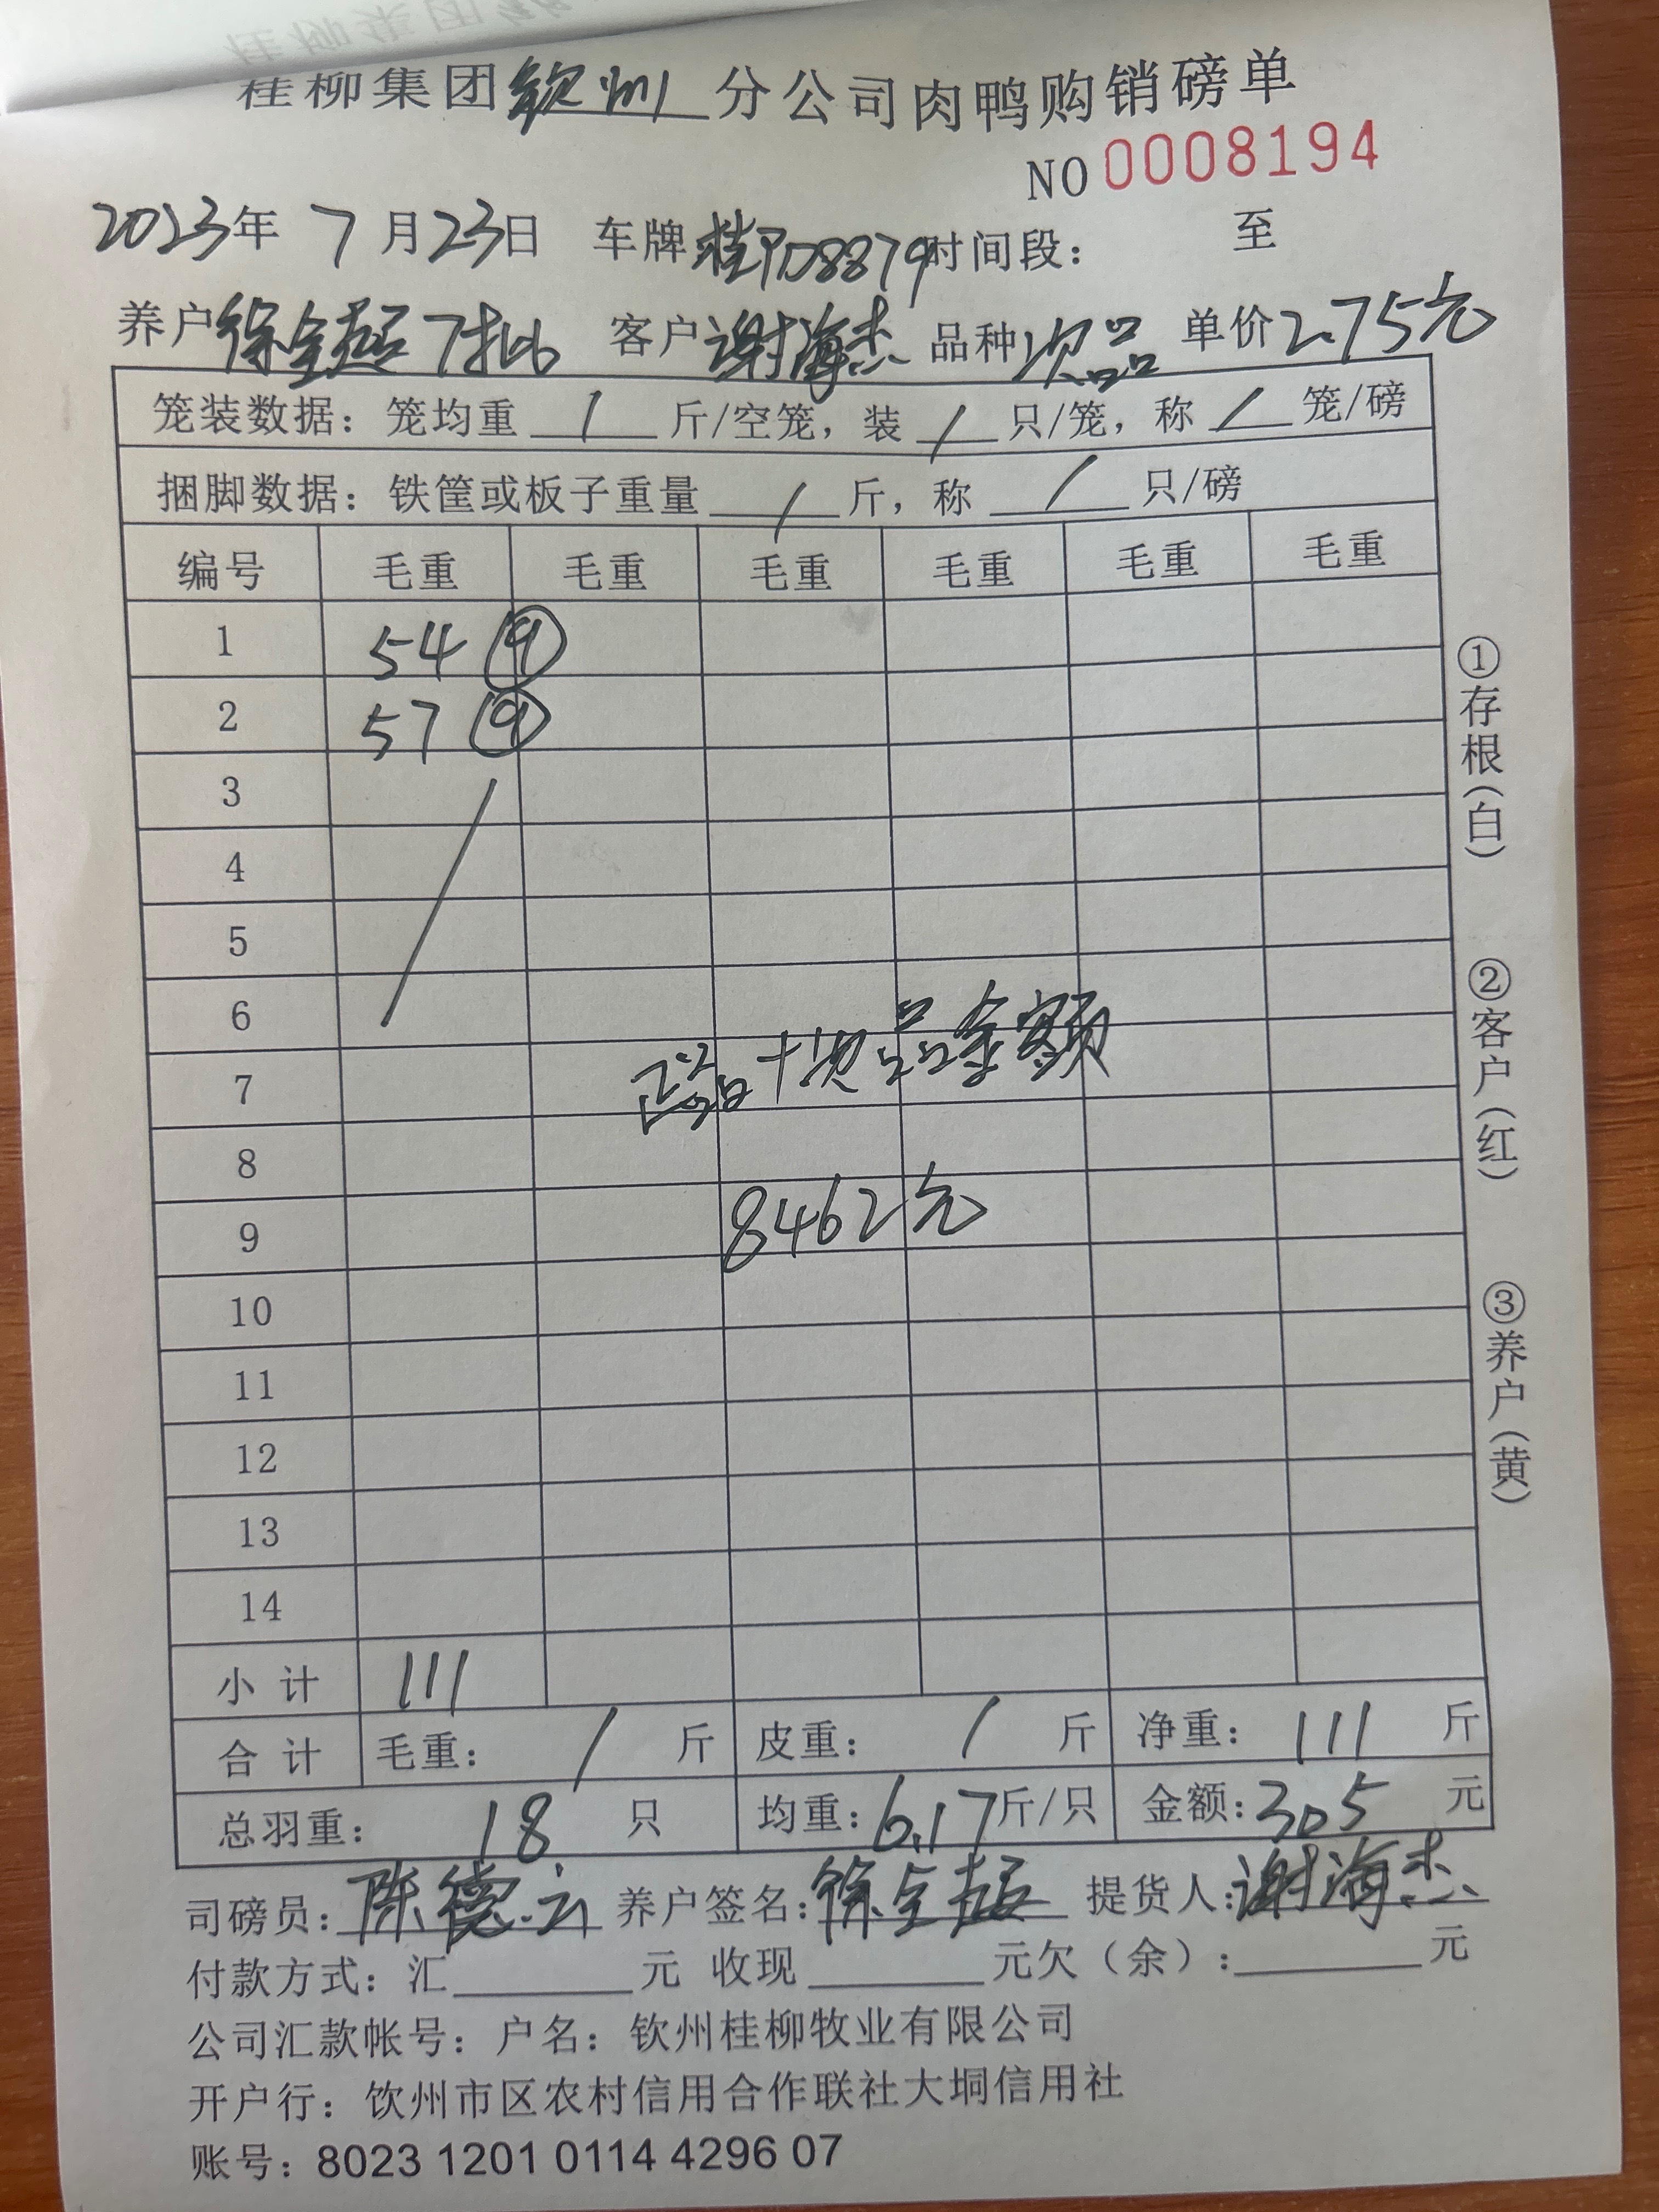 桂柳集团钦州分公司肉鸭购销磅单
NO 0008194
2023年 7月23日 车牌桂PD8879时间段： 至
养户徐全超7批 客户谢海杰 品种次品 单价2.75元
笼装数据：笼均重 / 斤/空笼，装 / 只/笼，称 / 笼/磅
捆脚数据：铁筐或板子重量 / 斤，称 / 只/磅
编号 毛重 毛重 毛重 毛重 毛重 毛重
1 54 ⑨
2 57 ⑨
3
4
5
6
7 +次品金额
8
9 8462元
10
11
12
13
14
小计 111
合计 毛重： / 斤 皮重： / 斤 净重：111 斤
总羽重： 18 只 均重：6.17斤/只 金额：305 元
司磅员：陈德云 养户签名：徐全超 提货人：谢海杰
付款方式：汇 元 收现 元欠（余）： 元
公司汇款帐号：户名：钦州桂柳牧业有限公司
开户行：钦州市区农村信用合作联社大垌信用社
账号：8023 1201 0114 4296 07
①存根（白） ②客户（红） ③养户（黄）